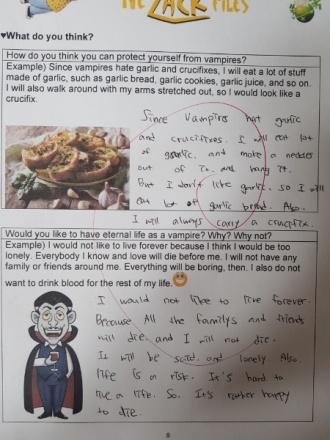 THE ZACK FILES
♥What do you think?
How do you think you can protect yourself from vampires?
Example) Since vampires hate garlic and crucifixes, I will eat a lot of stuff
made of garlic, such as garlic bread, garlic cookies, garlic juice, and so on.
I will also walk around with my arms stretched out, so I would look like a
crucifix.
Since Vampires hat garlic
and crucifixes. I will eat lot
of garlic. and make a neckles
out of it. and hang it.
But I don't like garlic. so I will
eat lot of garlic bread. Also.
I will always carry a crucifix.
Would you like to have eternal life as a vampire? Why? Why not?
Example) I would not like to live forever because I think I would be too
lonely. Everybody I know and love will die before me. I will not have any
family or friends around me. Everything will be boring, then. I also do not
want to drink blood for the rest of my life.
I would not like to live forever.
Because All the familys and friends
will die. and I will not die.
It will be and lonely. Also.
life is a risk. It's hard to
live a life. So. It's rather happy
to die.
8